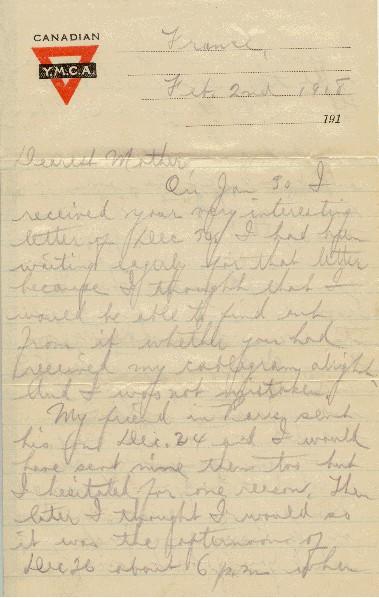 CANADIAN
Y.M.C.A.
France,
Feb. 2nd 1918
191
Dearest Mother,
On Jan 30 I
received your very interesting
letter of Dec 30. I had been
waiting eagerly for that letter
because I thought that I
would be able to find out
from it whether you had
received my cablegram alright
and I was not mistaken.
My friend in sent
his on Dec. 24 and I would
have sent mine then too but
I hesitated for one reason. Then
later I thought I would so
it was the afternoon of
Dec 26 about 6 p.m. when